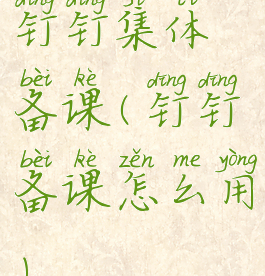 dīng dīng jí tǐ
钉钉集体
bèi kè dīng dīng
备课(钉钉
bèi kè zěn me yòng
备课怎么用
)